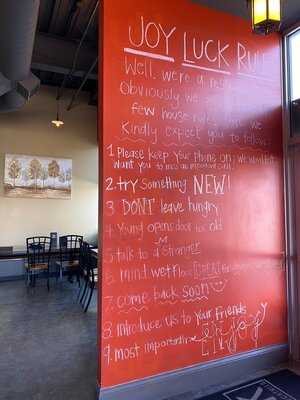 JOY LUCK RULES
Well, we're a
Obviously we
few house rules we
Kindly expect you to follow:
1 Please keep your phone on; we wouldn't
want you to miss an
2. try Something NEW!
3 DON'T leave hungry
4 Young opens door for old
5 talk to a Stranger
6 mind wet Floor
7 come back soon
8. introduce us to your friends
9. most importantly enjoy